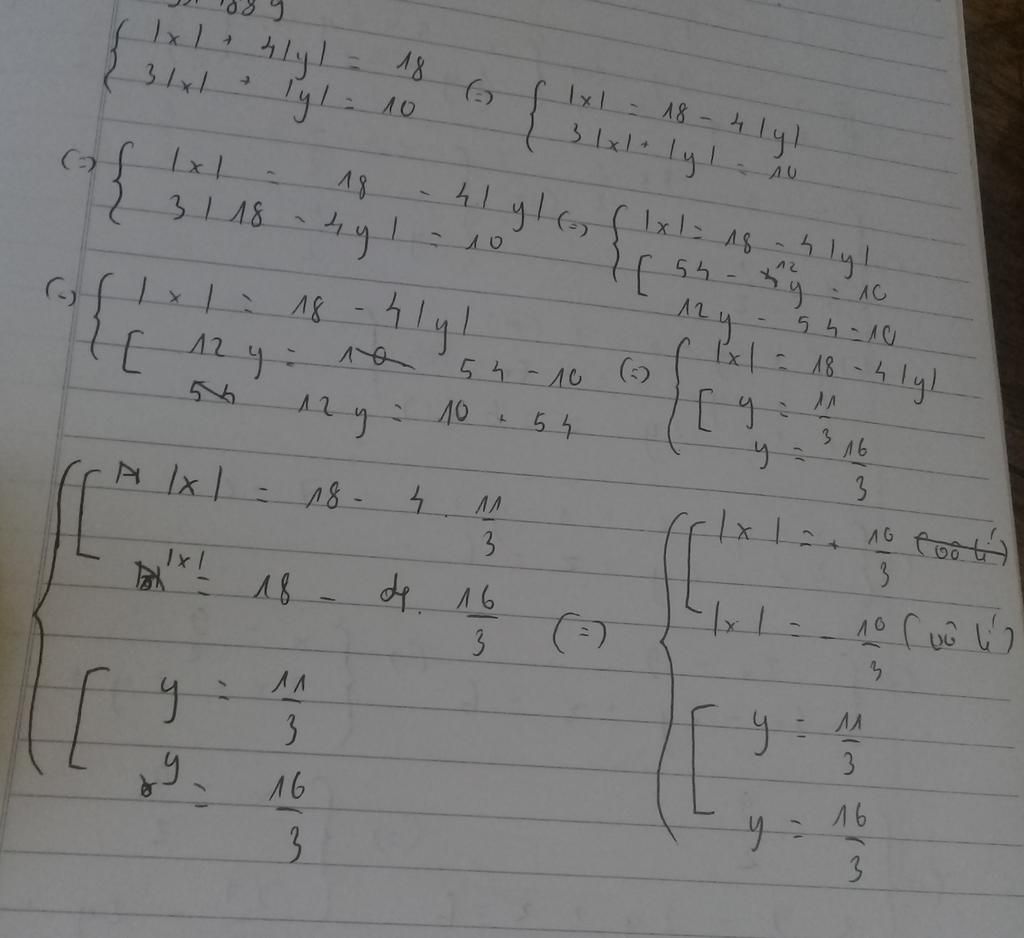 |x| + 4|y| = 18
3|x| + |y| = 10
(=) |x| = 18 - 4|y|
3|x| + |y| = 10
(=) |x| = 18 - 4|y|
3|18 - 4y| = 10
(=) |x| = 18 - 4|y|
54 - 12y = 10
12y - 54 = 10
(=) |x| = 18 - 4|y|
12y = 54 - 10
12y = 10 + 54
(=) |x| = 18 - 4|y|
y = 11/3
y = 16/3
|x| = 18 - 4 . 11/3
|x| = 18 - 4 . 16/3
y = 11/3
y = 16/3
(=) |x| = + 10/3 (vô lí)
|x| = - 10/3 (vô lí)
y = 11/3
y = 16/3